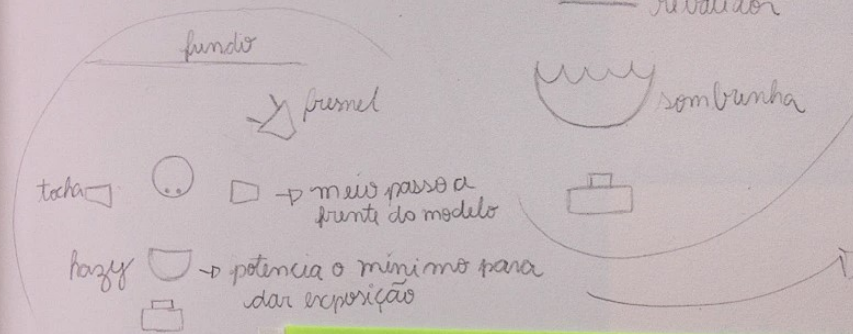 rebatedor
fundo
fresnel
sombrinha
tocha
meio passo a
frente do modelo
hazy
potencia o mínimo para
dar exposição